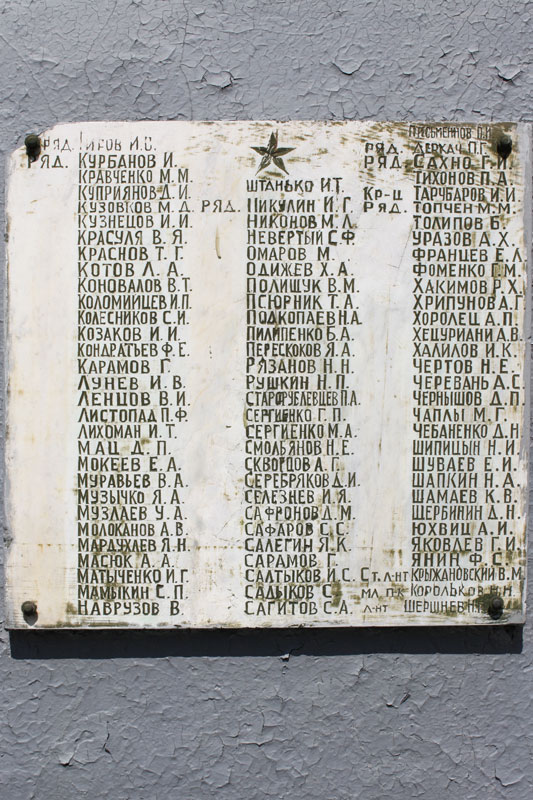 ряд. Гиров И.С.
ряд. Курбанов И.
Кравченко М.М.
Куприянов Д.И.
Кузовков М.Д.
Кузнецов И.И.
Красуля В.Я.
Краснов Т.Г.
Котов Л.А.
Коновалов В.Т.
Коломийцев И.П.
Колесников С.И.
Козаков И.И.
Кондратьев Ф.Е.
Карамов Г.
Лунев И.В.
Ленцов В.И.
Листопад П.Ф.
Лихоман И.Т.
Мац Д.П.
Мокеев Е.А.
Муравьев В.А.
Музычко Я.А.
Музлаев У.А.
Молоканов А.В.
Мардухлев Я.Н.
Масюк А.А.
Матыченко И.Г.
Мамыкин С.П.
Наврузов В.
Штанько И.Т.
ряд. Никулин И.Г.
Никонов М.Л.
Невертый С.Ф.
Омаров М.
Одижев Х.А.
Полищук В.М.
Псюрник Т.А.
Подкопаев Н.А.
Пилипенко Б.А.
Перескоков Я.А.
Рязанов Н.Н.
Рушкин Н.П.
Старорублевцев П.А.
Сергиенко Г.П.
Сергиенко М.А.
Смольянов Н.Е.
Скворцов А.Г.
Серебряков Д.И.
Селезнев И.Я.
Сафронов Д.М.
Сафаров С.С.
Салегин Я.К.
Сарамов Г.
Салтыков И.С.
Садыков С.
Сагитов С.А.
Письменнов П.И.
ряд. Деркач П.Г.
ряд. Сахно Г.И.
Тихонов П.А.
Кр-ц Тарубаров И.И.
Ряд. Топчен М.М.
Толипов Б.
Уразов А.Х.
Францев Е.Л.
Фоменко Г.М.
Хакимов Р.Х.
Хрипунов А.Г.
Хоролец А.П.
Хецуриани А.В.
Халилов И.К.
Чертов Н.Е.
Черевань А.С.
Чернышов Д.П.
Чаплы М.Г.
Чебаненко Д.Н.
Шипицын Н.И.
Шуваев Е.И.
Шапкин Н.А.
Шамаев К.В.
Щербинин Д.Н.
Юхвиц А.И.
Яковлев Г.И.
Янин Ф.С.
Ст. л-нт Крыхановский В.М.
мл. п-к Корольков Н.Н.
л-нт Шершнев